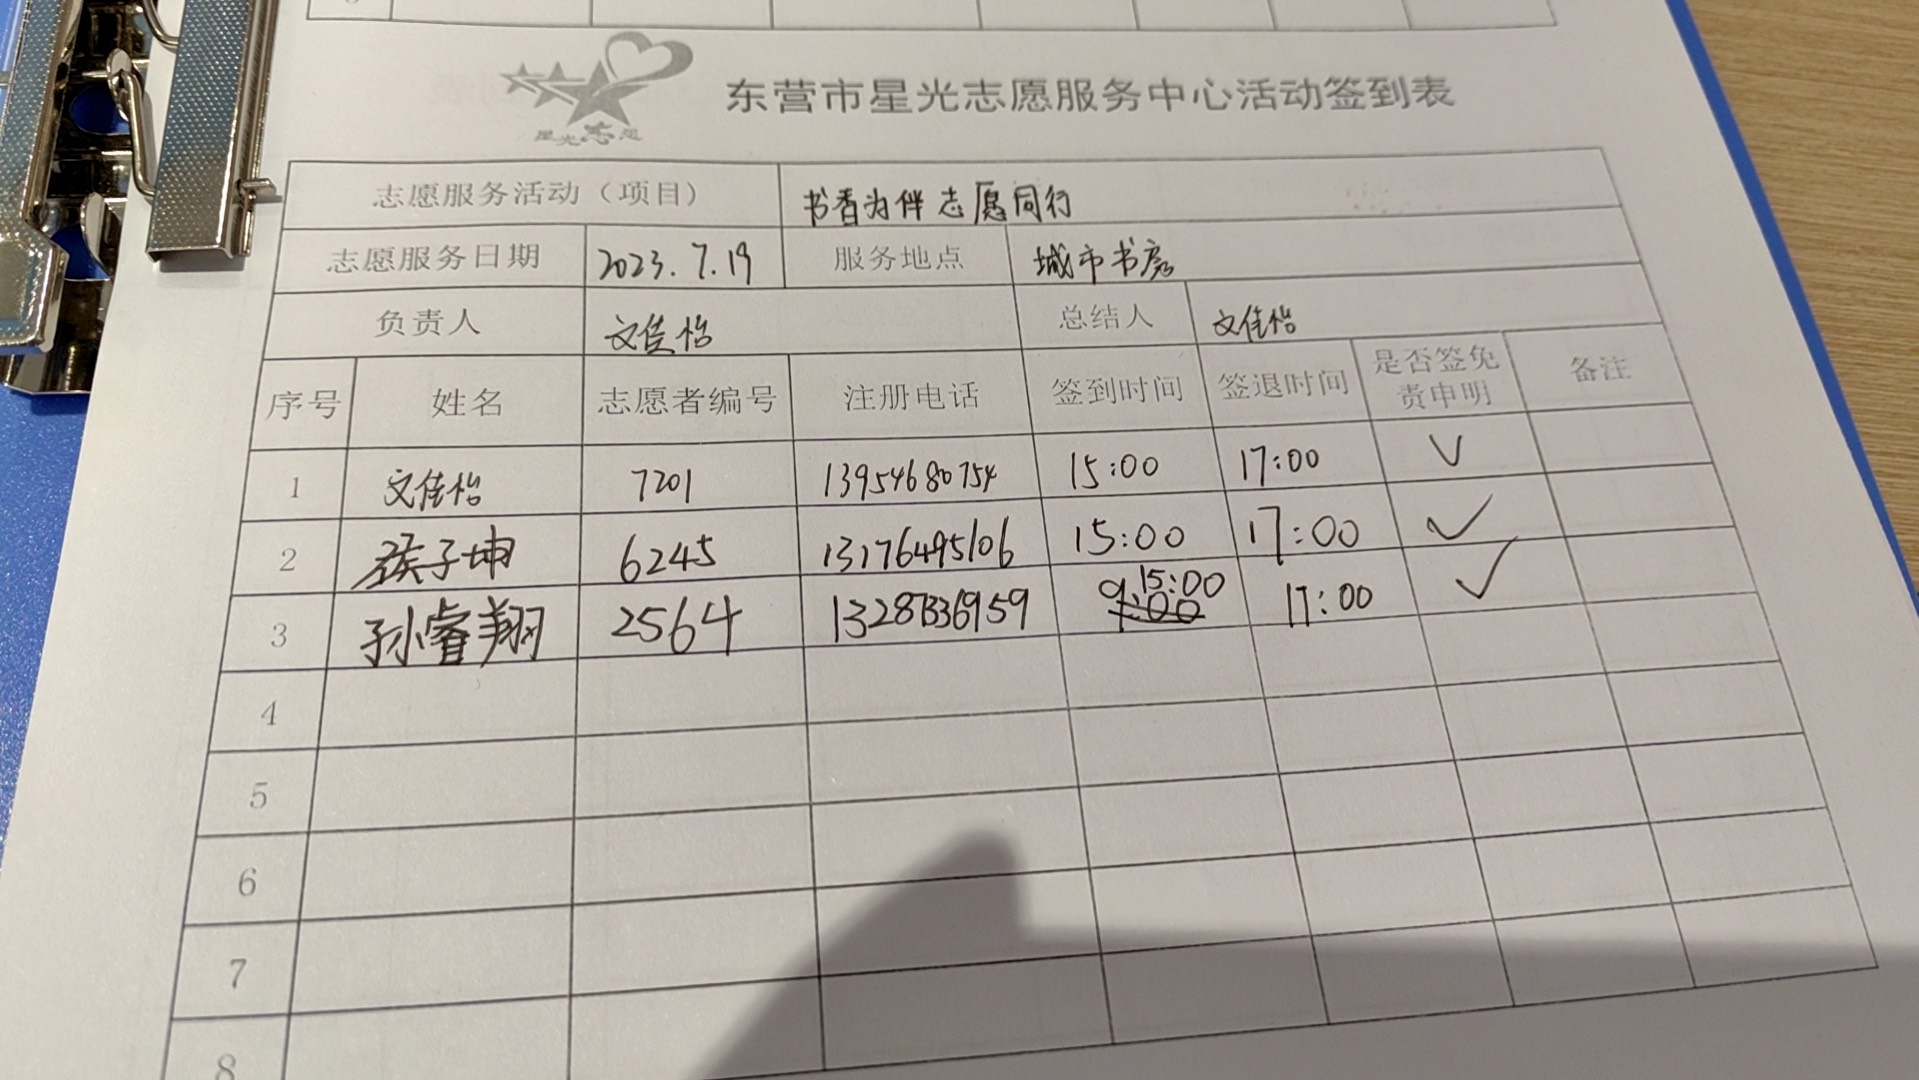 东营市星光志愿服务中心活动签到表
星光志愿
志愿服务活动（项目） 书香为伴 志愿同行
志愿服务日期 2023.7.19 服务地点 城市书房
负责人 文佳怡 总结人 文佳怡
序号 姓名 志愿者编号 注册电话 签到时间 签退时间 是否签免责申明 备注
1 文佳怡 7201 13954680754 15:00 17:00 ✓
2 子坤 6245 13176495106 15:00 17:00 ✓
3 孙睿翔 2564 15:00 17:00 ✓
4
5
6
7
8